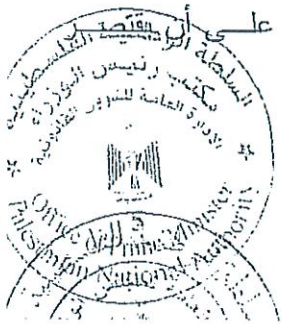 على أن تقتصر
السلطة الوطنية الفلسطينية
مكتب رئيس الوزراء
الإدارة العامة للشؤون القانونية
فلسطين
Office of the Prime Minister
Palestinian National Authority